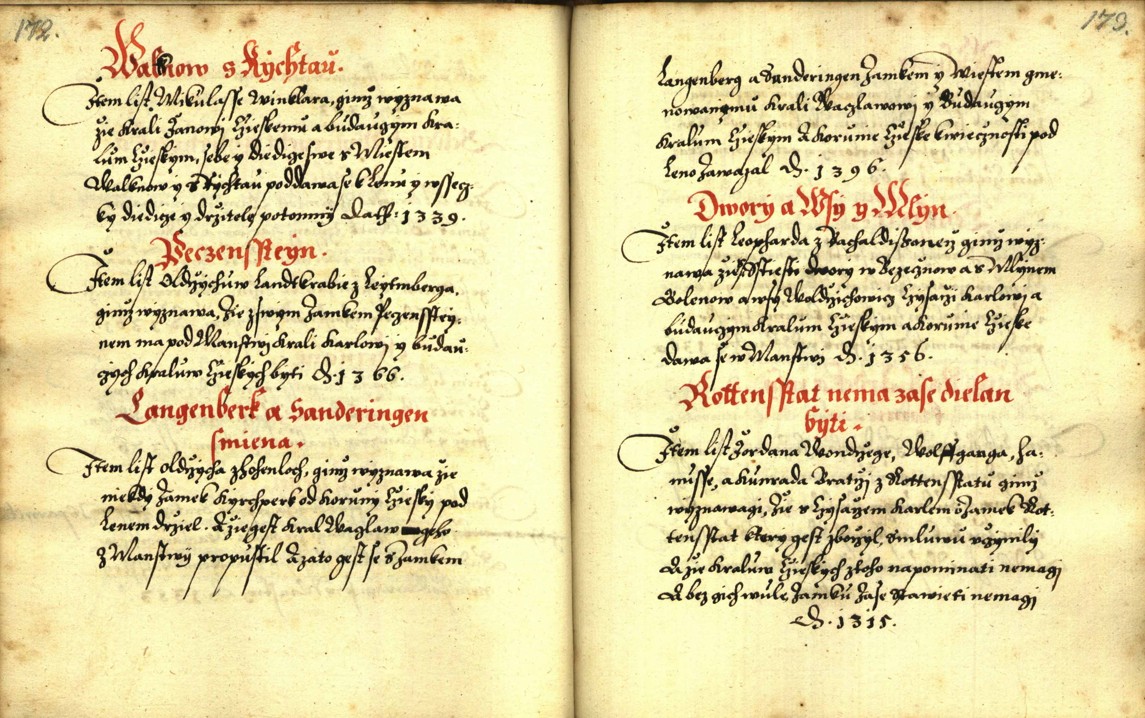 172.
Walknow s Rychtau.
Item list Mikulasse Winklara, gimz wyznawa
zie Krali Janowi Czieskemu a budauczym Kra:
lum Czieskym, sebe y diedicze swe s Miestem
Walknow y s Rychtau poddawa se k Lenu y wssecz:
ky diedicze y drzitele potomny Datt: 1339.
Peczenssteyn.
Item list Oldrzychuw Landtkrabie z Leytmberga,
gimz wyznawa, zie z swym Zamkem Peczensstey:
nem ma pod Manstwi Krali Karlowi y budau:
czych Kraluw Czieskych byti D. 1366.
Langenberk a Sanderingen
smiena.
Item list Oldrzycha z Hohenloch, gimz wyznawa zie
niekdy Zamek Kyrchperk od Koruny Czieský pod
Lenem drziel. A zie gest Kral Waczlaw geho
z Manstwy propustil A za to gest se s Zamkem
173.
Langenberg a Sanderingen Zamkem y Miestem gme:
nowanymu Krali Waczlawowi y Budauczym
Kralum Czieskym A Korunie Czieske k wiecznosti pod
Leno zawazal D. 1396.
Dwory a Wsy y Mlyn.
Item list Leopharda z gimz wyz:
nawa dwory w Bezeznow a s Mlynem
Golenow a wsy Woldrzichowicz Czysarzi Karlowi a
budauczym Kralum Czieskym a Korunie Czieske
dawa se w Manstwi D. 1356.
Rottensstat nema zase dielan
byti.
Item list Jordana Wondrzege, Wolffganga, Ha:
nusse, a Kunrada Bratrzy z Rottensstatu gimz
wyznawagi, zie s Czysarzem Karlem o Zamek Rot:
tensstat ktery gest zborzyl, smluwu vczynily
A zie Kraluw Czieskych z toho napominati nemagi
A bez gich wule Zamku zase stawieti nemagi
D. 1315.